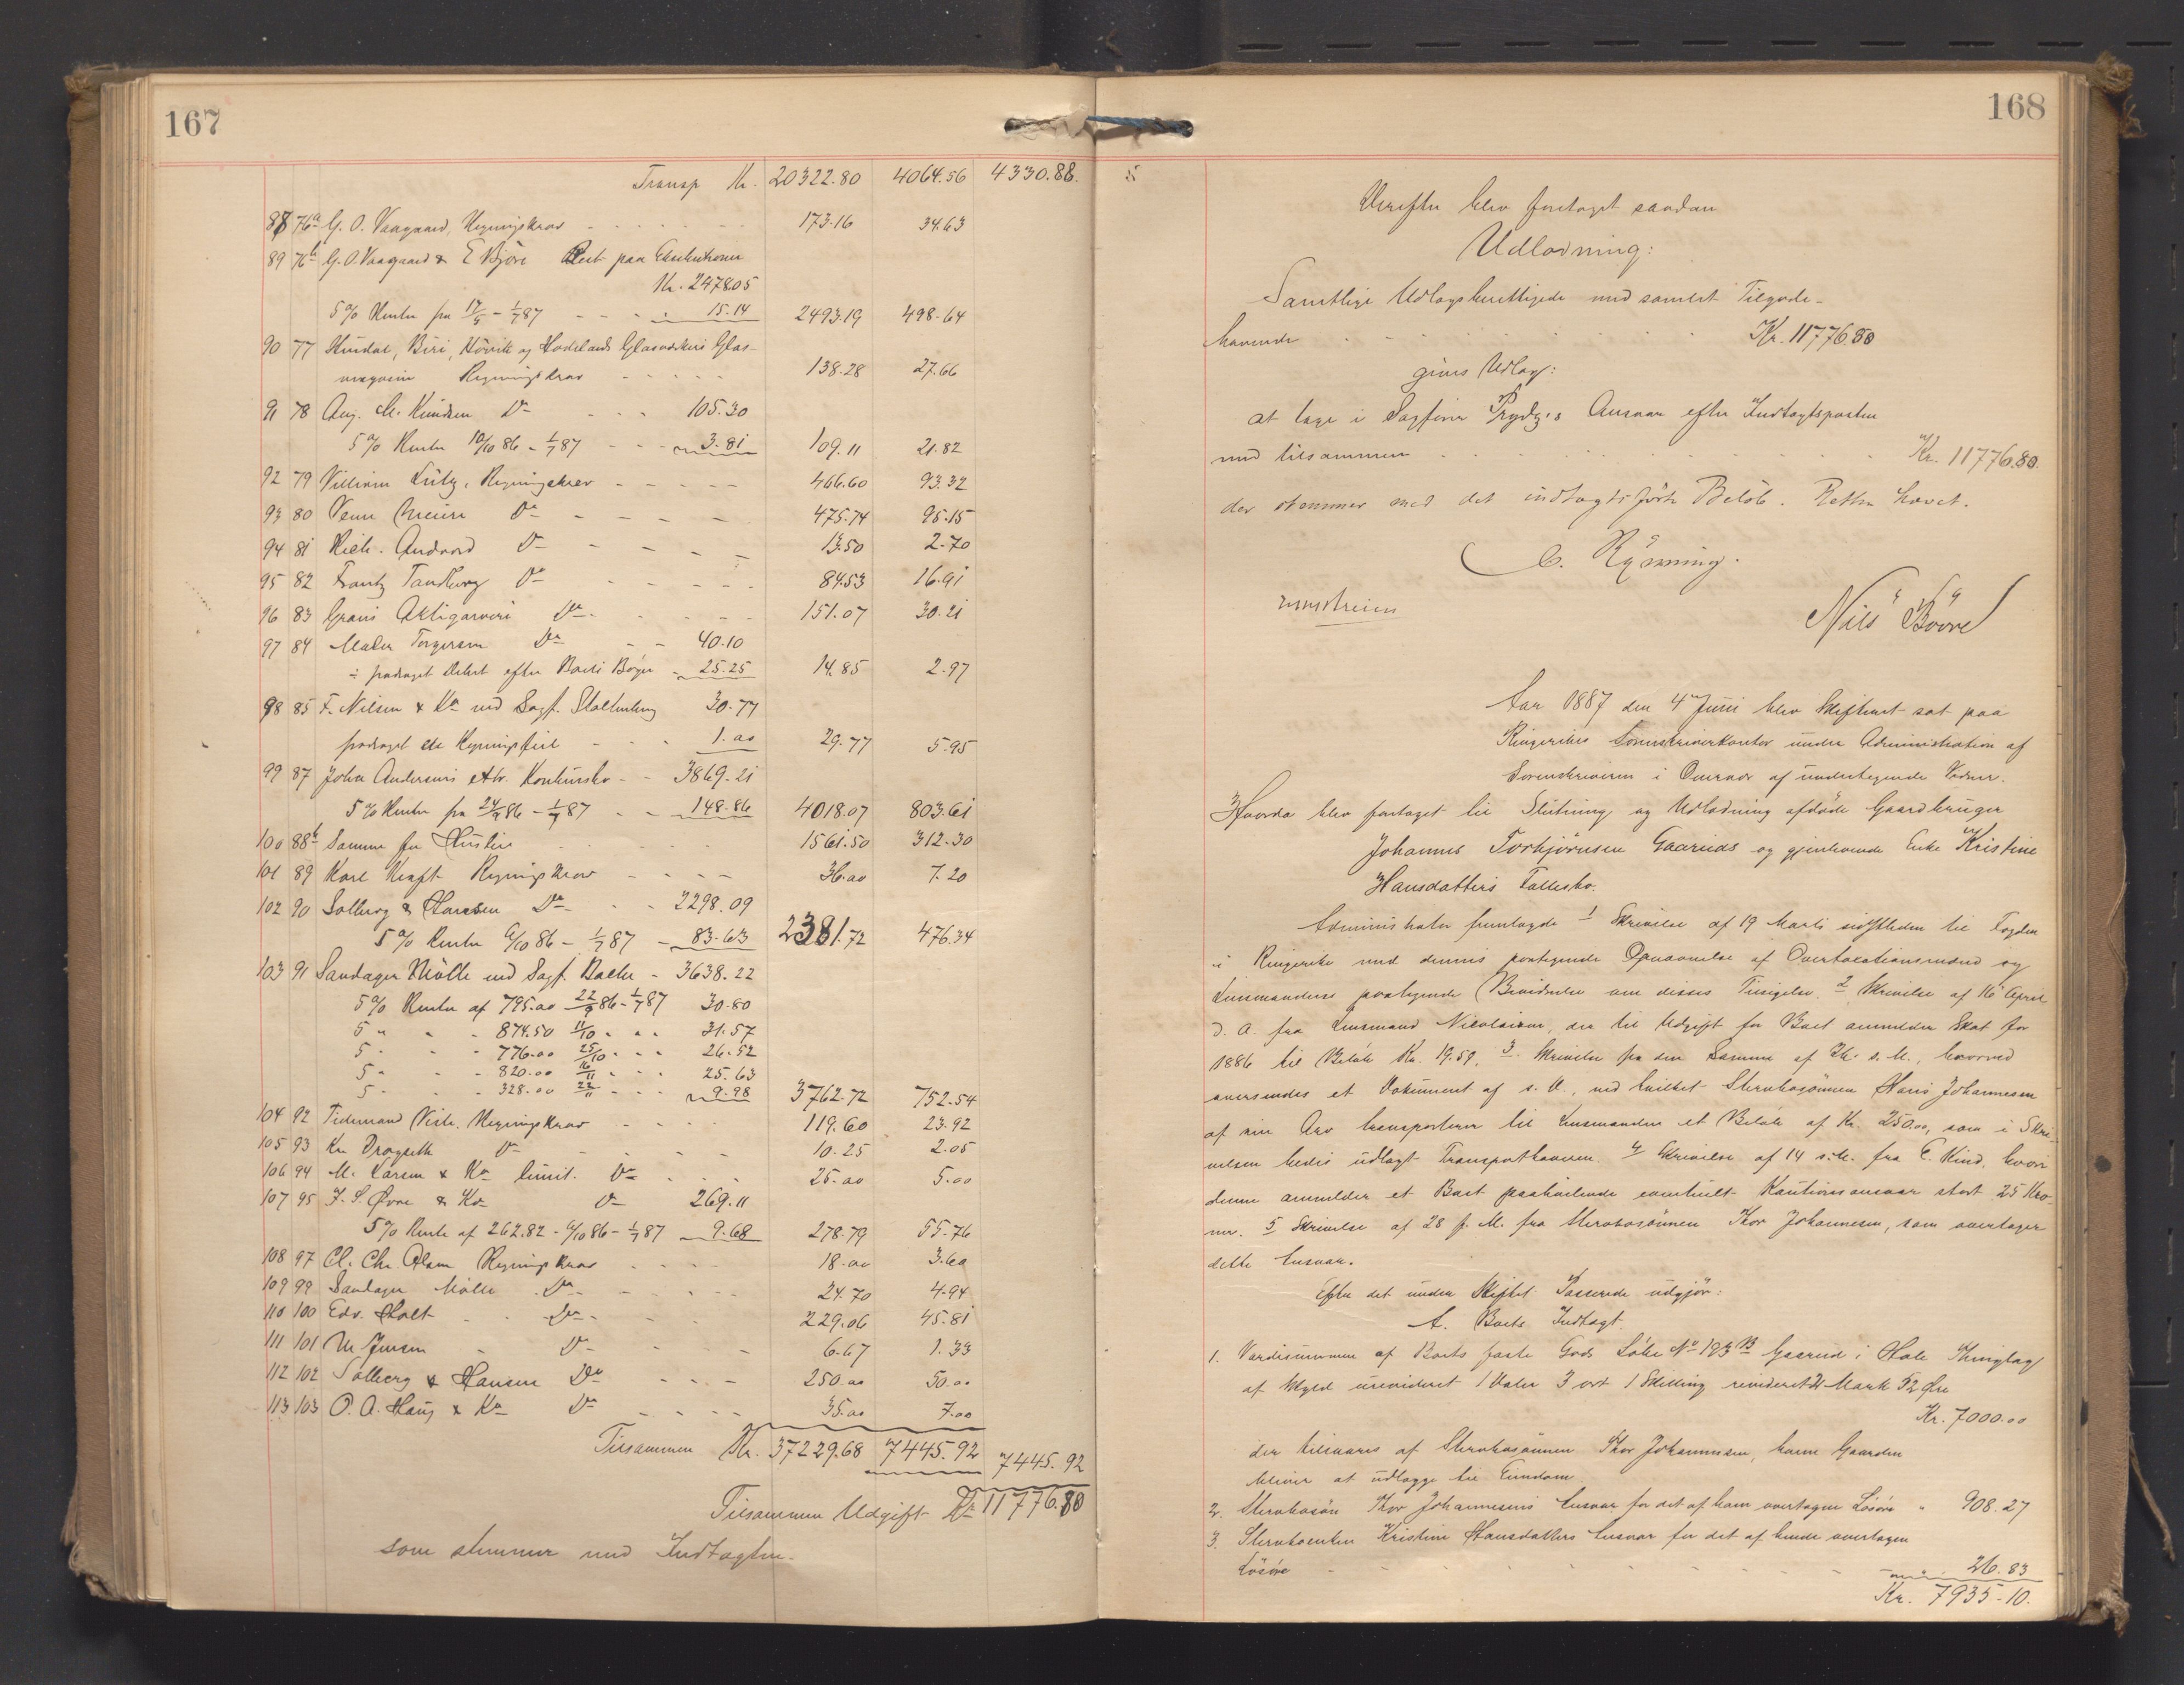 167
Transp Kr. 20322.80 4064.56 4330.88.
88 76a G. O. Vaagaard, Regningskrav 173.16 34.63
89 76b G. O. Vaagaard & E Björe Rest paa Exekutioner
Kr. 2478.05
5% Renter fra 17/5 - 1/7 87 15.14 2493.19 498.64
90 77 Hurdal, Biri, Hövik og Hadelands Glasværkers Glas-
magasin Regningskrav 138.28 27.66
91 78 Aug. M. Knudsen Do 105.30
5% Renter 10/10 86 - 1/7 87 3.81 109.11 21.82
92 79 Villiam Lütz, Regningskrav 466.60 93.32
93 80 475.74 95.15
94 81 Rich. Andvord Do 13.50 2.70
95 82 Frantz Tandberg Do 84.53 16.91
96 83 Grans Aktiebryggeri Do 151.07 30.21
97 84 Torgersen Do 40.10
÷ fradraget Debet efter Boets Bøger 25.25 14.85 2.97
98 85 F. Nilsen & Ko ved Sagf. Stoltenberg 30.77
fradraget Regningsfeil 1.00 29.77 5.95
99 87 Johan Andersens Konkursbo 3869.21
5% Renter fra 24/9 86 - 1/7 87 148.86 4018.07 803.61
100 88b Samme for Husleie 1561.50 312.30
101 89 Karl Kraft Regningskrav 36.00 7.20
102 90 Solberg & Hansen Do 2298.09
5% Renter 6/10 86 - 1/7 87 83.63 2381.72 476.34
103 91 Sandager Mölle ved Sagf. Bache 3638.22
5% Renter af 795.00 22/9 86 - 1/7 87 30.80
5 " - - 874.50 11/10 - " " 31.57
5 - - - 776.00 25/10 - - - 26.52
5 - - - 820.00 16/11 - - - 25.63
5 - - - 328.00 22/11 - - - 9.98 3762.72 752.54
104 92 Tidemand Regningskrav 119.60 23.92
105 93 Kr. Dragseth Do 10.25 2.05
106 94 M. Larsen & Ko limit. Do 25.00 5.00
107 95 J. S. Øvre & Ko Do 269.11
5% Rente af 262.82 - 6/10 86 - 1/7 87 9.68 278.79 55.76
108 97 Cl. Chr. Olsen Regningskrav 18.00 3.60
109 99 Sandager Mölle Do 24.70 4.94
110 100 Edv. Holt Do 229.06 45.81
111 101 M Jensen Do 6.67 1.33
112 102 Solberg & Hansen Do 250.00 50.00
113 103 O. A. Haug & Ko Do 35.00 7.00
Tilsammen Kr. 37229.68 7445.92 7445.92
Tilsammen Udgift Kr 11776.80
som stemmer med Indtægten.
168
Derefter blev foretaget saadan
Udlodning:
Samtlige Udlægsberettigede med samlet Tilgode-
havende Kr. 11776.80
gives Udlæg:
at tage i Sagfører Prydz's Ansvar efter Indtægtsposten
med tilsammen Kr. 11776.80.
der stemmer med det indtægtsførte Beløb. Retten hævet.
C. Rynning.
Nils Böore
Aar 1887 den 4de Juni blev Skifteret sat paa
Ringerikes Sorenskriverkontor under Administration af
Sorenskriveren i Overvær af undertegnede Vidner.
Hvorda blev foretaget til Slutning og Udlodning afdøde Gaardbruger
Johannes Torbjørnsen Gaaruds og gjenlevende Enke Kristine
Hansdatters Fællesbo.
Administrator fremlagde 1 Skrivelse af 19 Marts sidstleden til Fogden
i Ringerike med dennes paategnede Opnævnelse af Overtaxationsmænd og
Lensmandens paategnede Bevidnelse om disses Tilsigelse. 2 Skrivelse af 16 April
d. A. fra Lensmand Nicolaisen, der til Udgift for Boet anmelder Skat for
1886 til Beløb Kr. 19.59. 3. Skrivelse fra den Samme af s. M., hvorved
oversendes et Dokument af s. D., ved hvilket Stervbosönnen Hans Johannesen
af sin Arv transporterer til Lensmanden et Beløb af Kr. 250.00, som i Skri-
velsen bedes udlagt Transporthaveren. 4 Skrivelse af 14 s. M. fra E. Kind, hvori
denne anmelder et Boet paahvilende eventuelt Kautionsansvar stort 25 Kro-
ner. 5 Skrivelse af 28 f. M. fra Stervbosönnen Thor Johannesen, som overtager
dette Ansvar.
Efter det under Skiftet Passerede udgjör:
A. Boets Indtægt.
1. Værdisummen af Boets faste Gods Löbe No 193 B Gaarud i Hole Thinglag
af Skyld urevideret 1 Daler 3 ort 1 Skilling revideret Mark 52 Øre
Kr. 7000.00
der tilsvares af Stervbosönnen Thor Johannesen, hvem Gaarden
bliver at udlægge til Eiendom.
2. Stervbosön Thor Johannesens Ansvar for det af ham overtagne Lösöre " 908.27
3. Stervboenken Kristine Hansdatters Ansvar for det af hende overtagne
Lösöre 26.83
Kr. 7935.10.